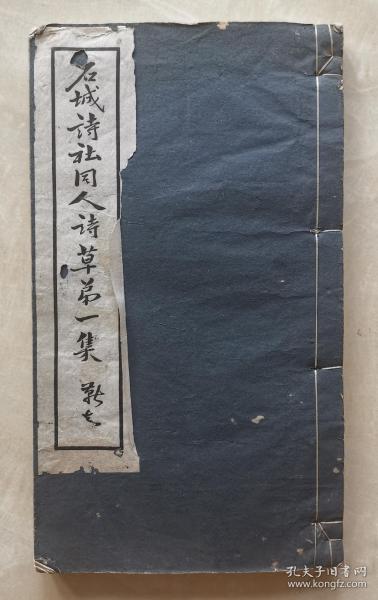 石城詩社同人詩草第一集
孔夫子旧书网
www.kongfz.com